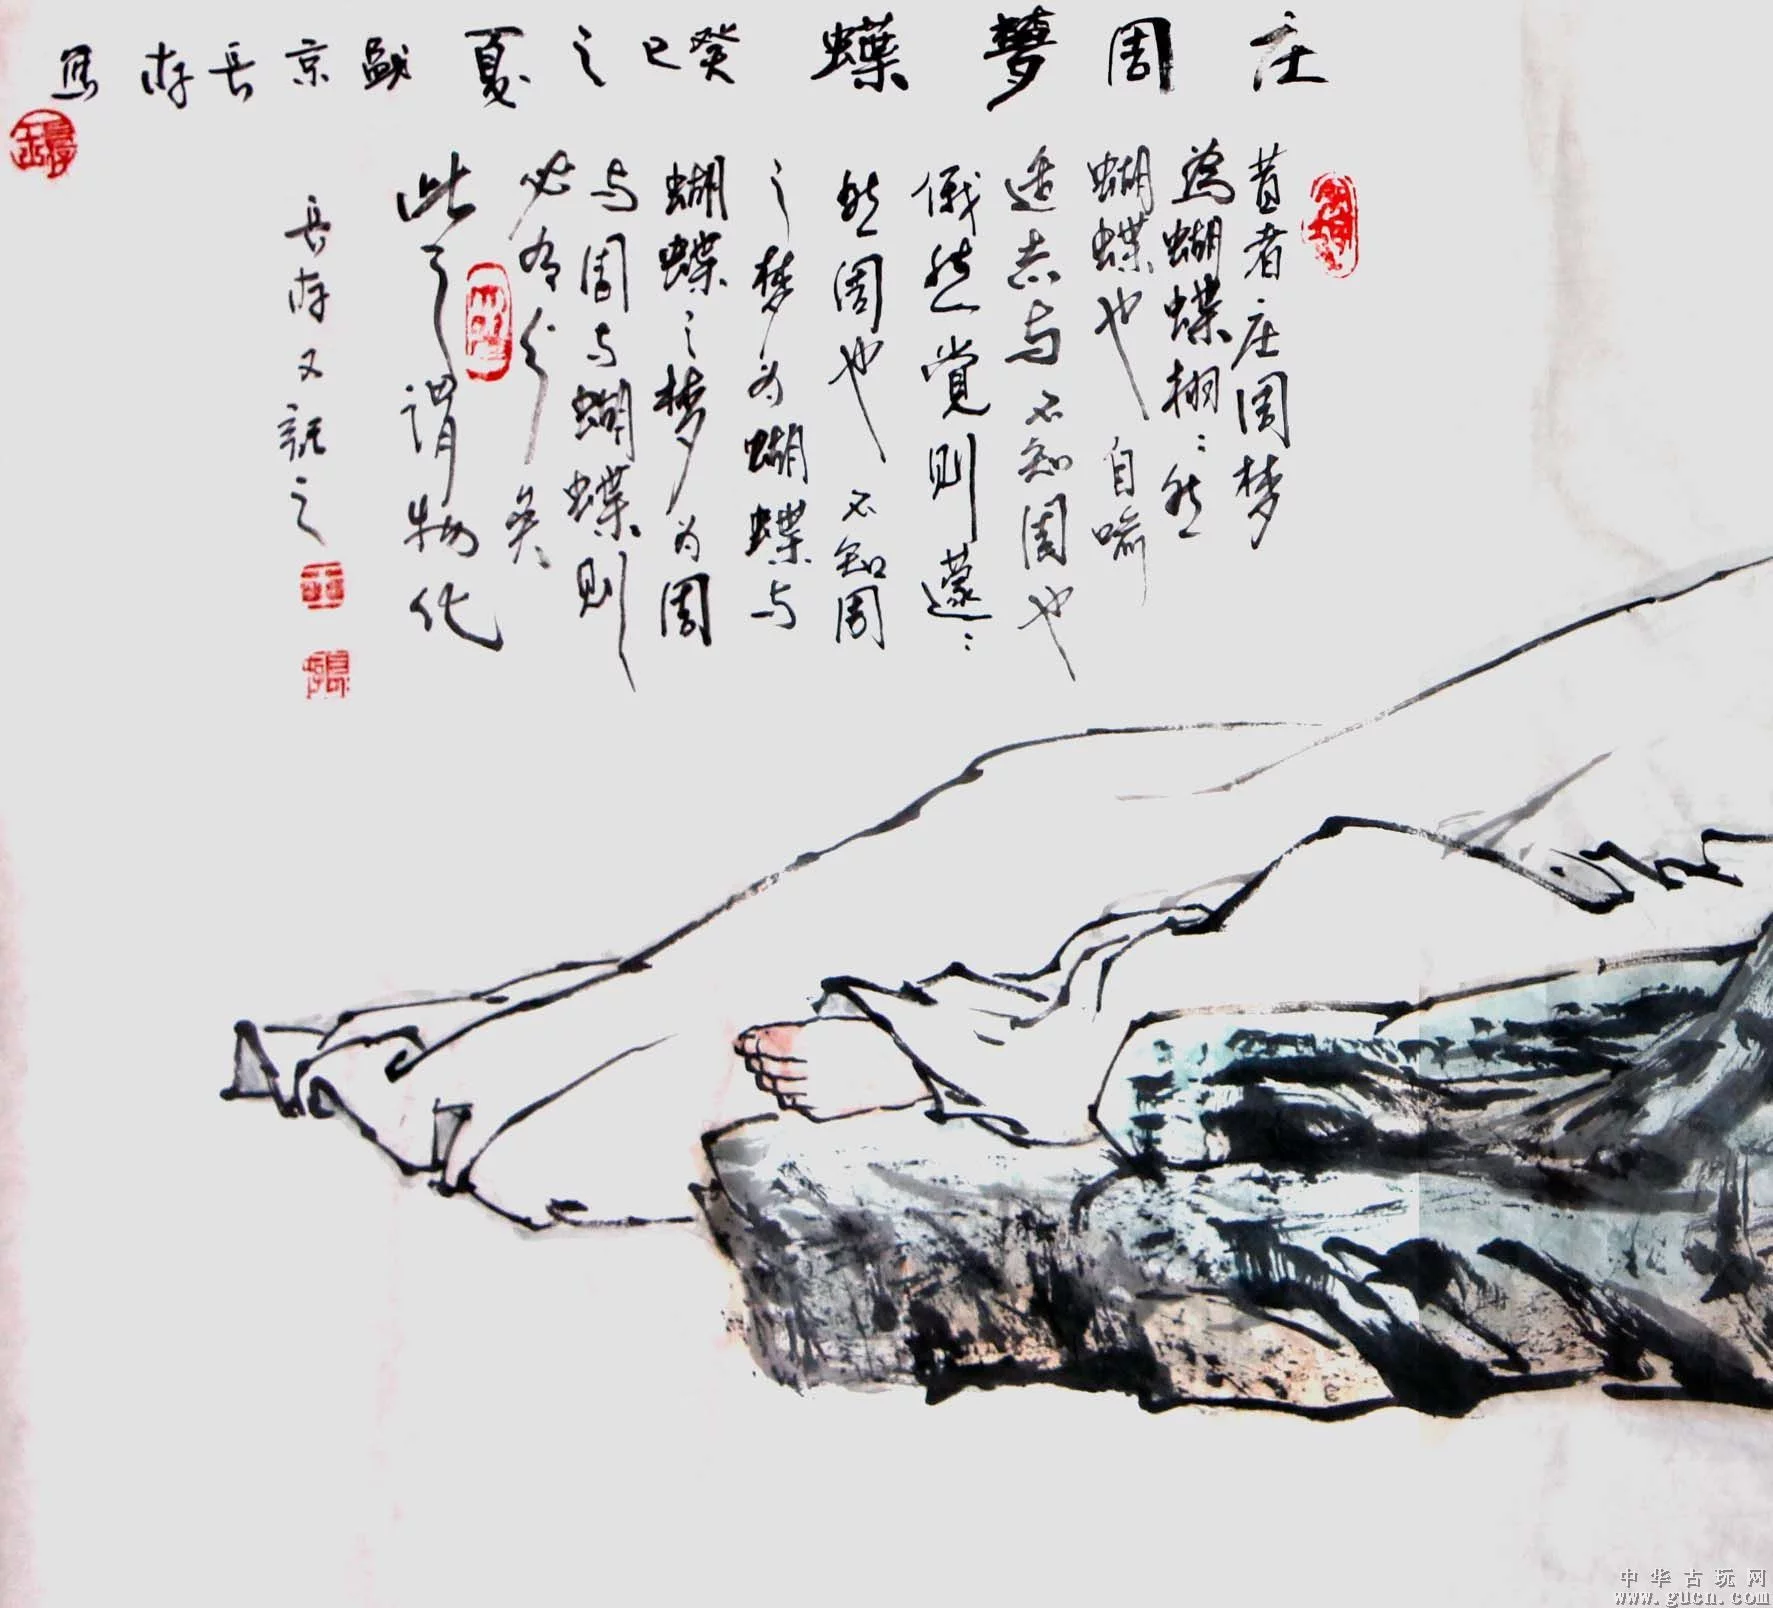 庄周梦蝶 癸巳之夏 盛京长存写
昔者庄周梦
为蝴蝶栩栩然
蝴蝶也自喻
适志与不知周也
俄然觉则蘧蘧
然周也不知周
之梦为蝴蝶与
蝴蝶之梦为周
与周与蝴蝶则
必有分矣
此之谓物化
长存又记之
中华古玩网
www.gucn.com